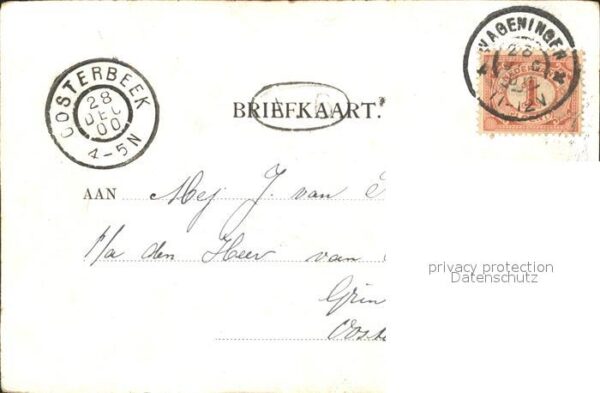 OOSTERBEEK
28
DEC
00
4-5N
WAGENINGEN
28
11-12V
1
BRIEFKAART.
AAN Mej J. van
p/a den Heer van
Grin
Ooste
privacy protection
Datenschutz